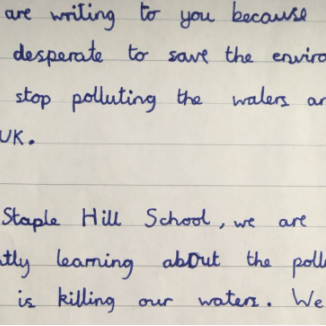 are writing to you because
desperate to save the enviro
stop polluting the waters an
UK.
Staple Hill School, we are
tly learning about the poll
is killing our waters. We